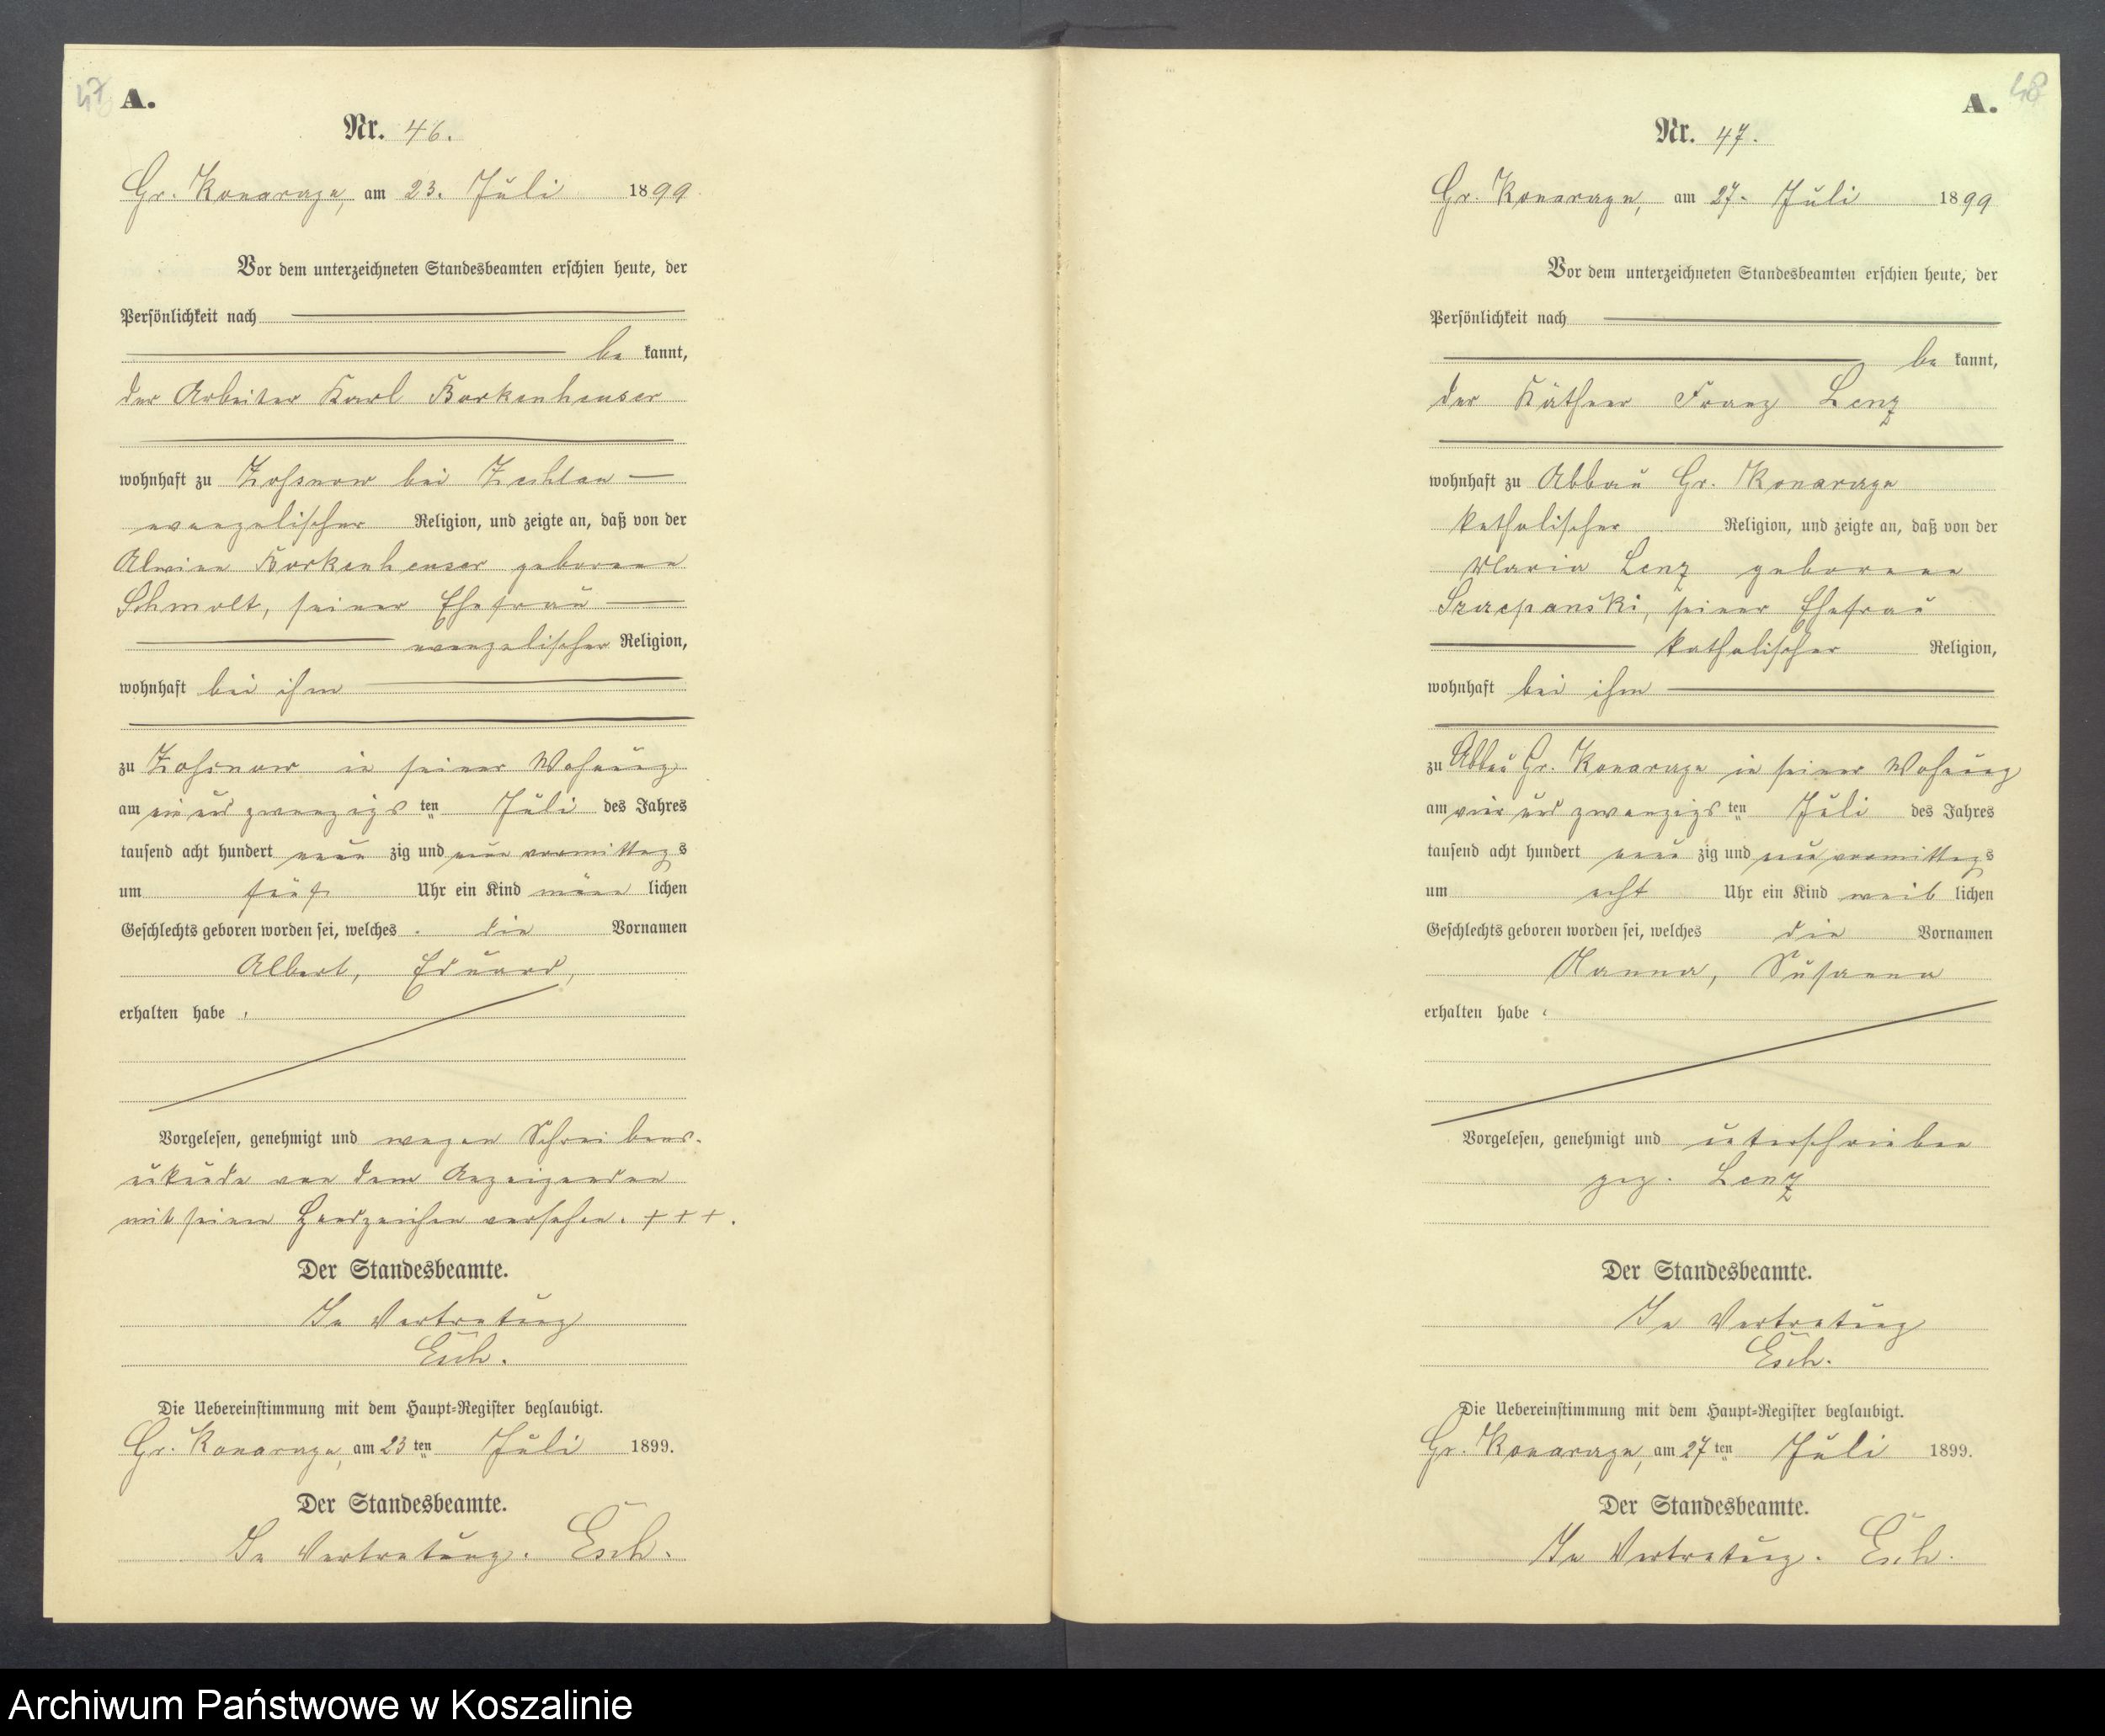 47
A.
Nr. 46.
Gr. Konarzyn, am 23. Juli 1899
Vor dem unterzeichneten Standesbeamten erschien heute, der
Persönlichkeit nach
be kannt,
der Arbeiter Karl Borkenheuser
wohnhaft zu Zossnow bei Zechlau
evangelischer Religion, und zeigte an, daß von der
Alwine Borkenheuser geborene
Schmolt, seiner Ehefrau
evangelischer Religion,
wohnhaft bei ihm
zu Zossnow in seiner Wohnung
am ein und zwanzigs ten Juli des Jahres
tausend acht hundert neun zig und neun vormittag s
um fünf Uhr ein Kind männ lichen
Geschlechts geboren worden sei, welches die Vornamen
Albert, Eduard,
erhalten habe.
Vorgelesen, genehmigt und wegen Schreibens-
unkunde von dem Anzeigenden
mit seinem Handzeichen versehen. + + +.
Der Standesbeamte.
In Vertretung
Esch.
Die Uebereinstimmung mit dem Haupt=Register beglaubigt.
Gr. Konarzyn, am 23 ten Juli 1899.
Der Standesbeamte.
In Vertretung. Esch.
48
A.
Nr. 47.
Gr. Konarzyn, am 27. Juli 1899
Vor dem unterzeichneten Standesbeamten erschien heute, der
Persönlichkeit nach
be kannt,
der Käthner Franz Lenz
wohnhaft zu Abbau Gr. Konarzyn
katholischer Religion, und zeigte an, daß von der
Maria Lenz geborene
Szczepanski, seiner Ehefrau
katholischer Religion,
wohnhaft bei ihm
zu Abbau Gr. Konarzyn in seiner Wohnung
am vier und zwanzigs ten Juli des Jahres
tausend acht hundert neun zig und neun vormittag s
um acht Uhr ein Kind weib lichen
Geschlechts geboren worden sei, welches die Vornamen
Hanna, Susanna
erhalten habe.
Vorgelesen, genehmigt und unterschrieben
gez. Lenz
Der Standesbeamte.
In Vertretung
Esch.
Die Uebereinstimmung mit dem Haupt=Register beglaubigt.
Gr. Konarzyn, am 27 ten Juli 1899.
Der Standesbeamte.
In Vertretung. Esch.
Archiwum Państwowe w Koszalinie